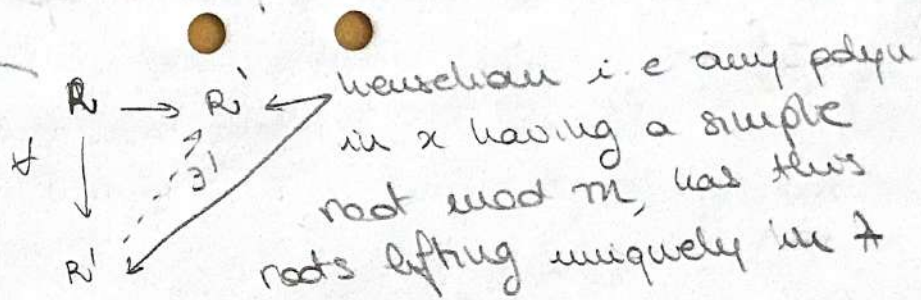 R → R' henselian i.e any polyn
in x having a simple
∀ ∃! root mod m, has this
R' roots lifting uniquely in A